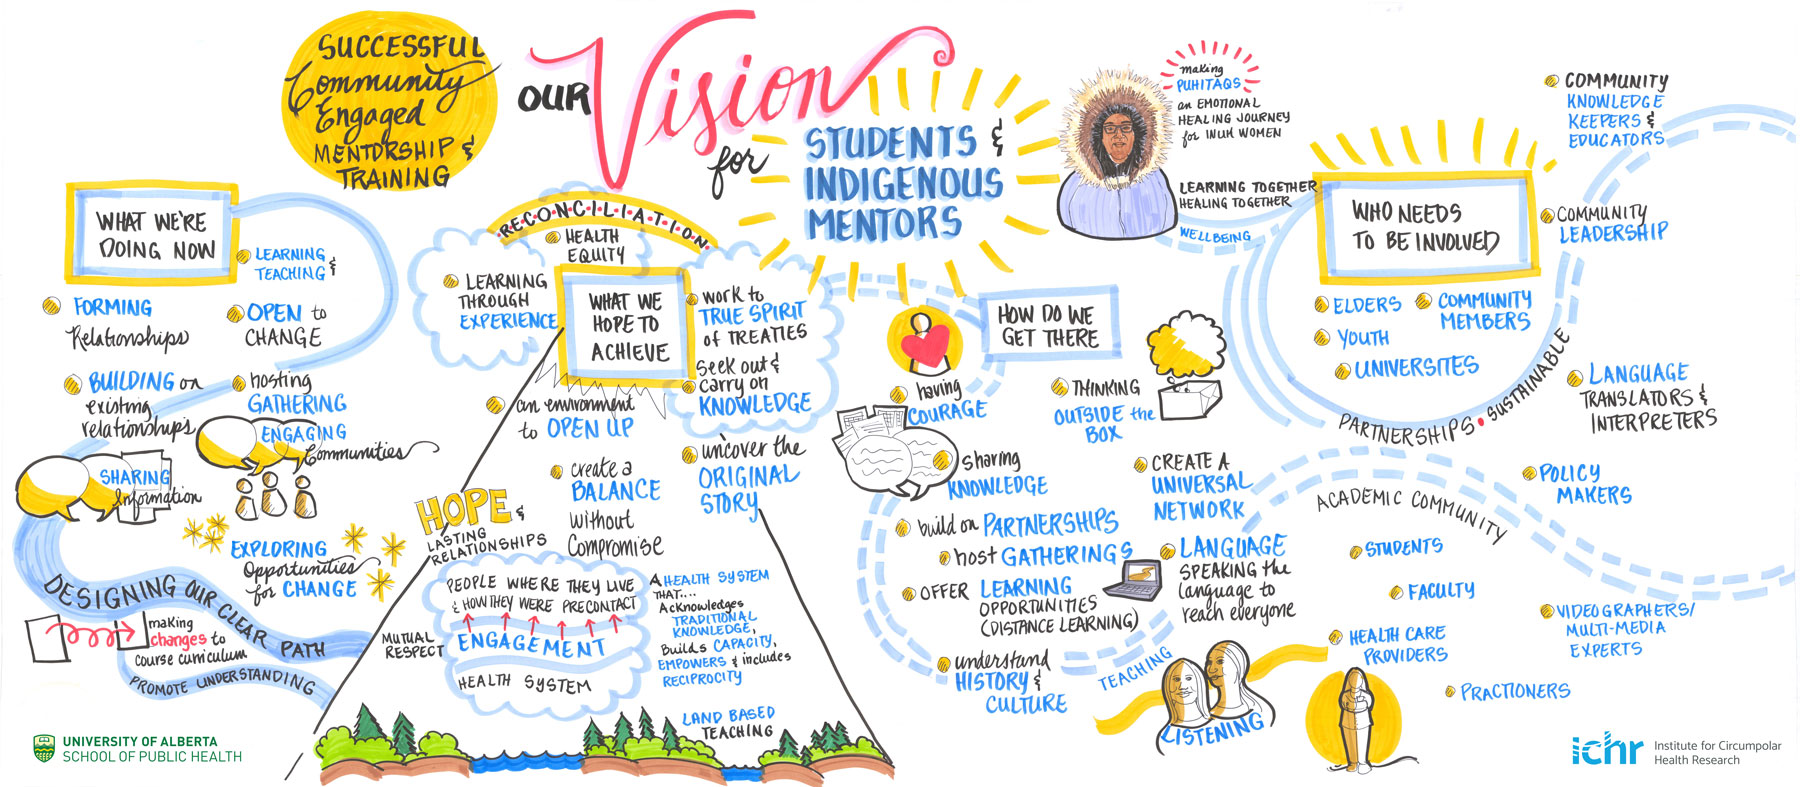 SUCCESSFUL
Community
Engaged
MENTORSHIP &
TRAINING
OUR Vision
for
STUDENTS &
INDIGENOUS
MENTORS
making
PUHITAQS
an EMOTIONAL
HEALING JOURNEY
for INUIT WOMEN
LEARNING TOGETHER
HEALING TOGETHER
WELLBEING
WHAT WE'RE
DOING NOW
LEARNING &
TEACHING
FORMING
Relationships
OPEN to
CHANGE
BUILDING on
existing
relationships
hosting
GATHERING
ENGAGING
Communities
SHARING
Information
EXPLORING
Opportunities
for CHANGE
DESIGNING OUR CLEAR PATH
making
changes to
course curriculum
PROMOTE UNDERSTANDING
UNIVERSITY OF ALBERTA
SCHOOL OF PUBLIC HEALTH
RECONCILIATION
HEALTH
EQUITY
LEARNING
THROUGH
EXPERIENCE
WHAT WE
HOPE TO
ACHIEVE
work to
TRUE SPIRIT
of TREATIES
seek out &
carry on
KNOWLEDGE
an environment
to OPEN UP
uncover the
ORIGINAL
STORY
create a
BALANCE
without
Compromise
HOPE &
LASTING
RELATIONSHIPS
PEOPLE WHERE THEY LIVE
& HOW THEY WERE PRECONTACT
ENGAGEMENT
HEALTH SYSTEM
MUTUAL
RESPECT
A HEALTH SYSTEM
THAT....
Acknowledges
TRADITIONAL
KNOWLEDGE,
Builds CAPACITY,
EMPOWERS & includes
RECIPROCITY
LAND BASED
TEACHING
HOW DO WE
GET THERE
having
COURAGE
THINKING
OUTSIDE the
BOX
sharing
KNOWLEDGE
CREATE A
UNIVERSAL
NETWORK
build on PARTNERSHIPS
host GATHERINGS
OFFER LEARNING
OPPORTUNITIES
(DISTANCE LEARNING)
LANGUAGE
SPEAKING the
language to
reach everyone
understand
HISTORY &
CULTURE
TEACHING
LISTENING
WHO NEEDS
TO BE INVOLVED
COMMUNITY
KNOWLEDGE
KEEPERS &
EDUCATORS
COMMUNITY
LEADERSHIP
ELDERS
COMMUNITY
MEMBERS
YOUTH
UNIVERSITIES
PARTNERSHIPS • SUSTAINABLE
LANGUAGE
TRANSLATORS &
INTERPRETERS
POLICY
MAKERS
ACADEMIC COMMUNITY
STUDENTS
FACULTY
HEALTH CARE
PROVIDERS
VIDEOGRAPHERS/
MULTI-MEDIA
EXPERTS
PRACTIONERS
ichr
Institute for Circumpolar
Health Research